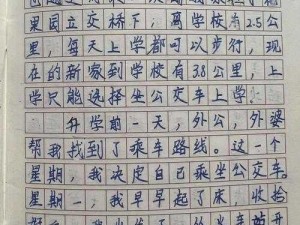 果园立交桥下，离学校有2.5公
里，每天上学都可以步行，现
在的新家到学校有3.8公里，上
学只能选择坐公交车上学。
升学前一天，外公，外婆
帮我找到了乘车路线。这一个
星期，我决定自已乘坐公交车。
星期一，我早早起了床，收拾